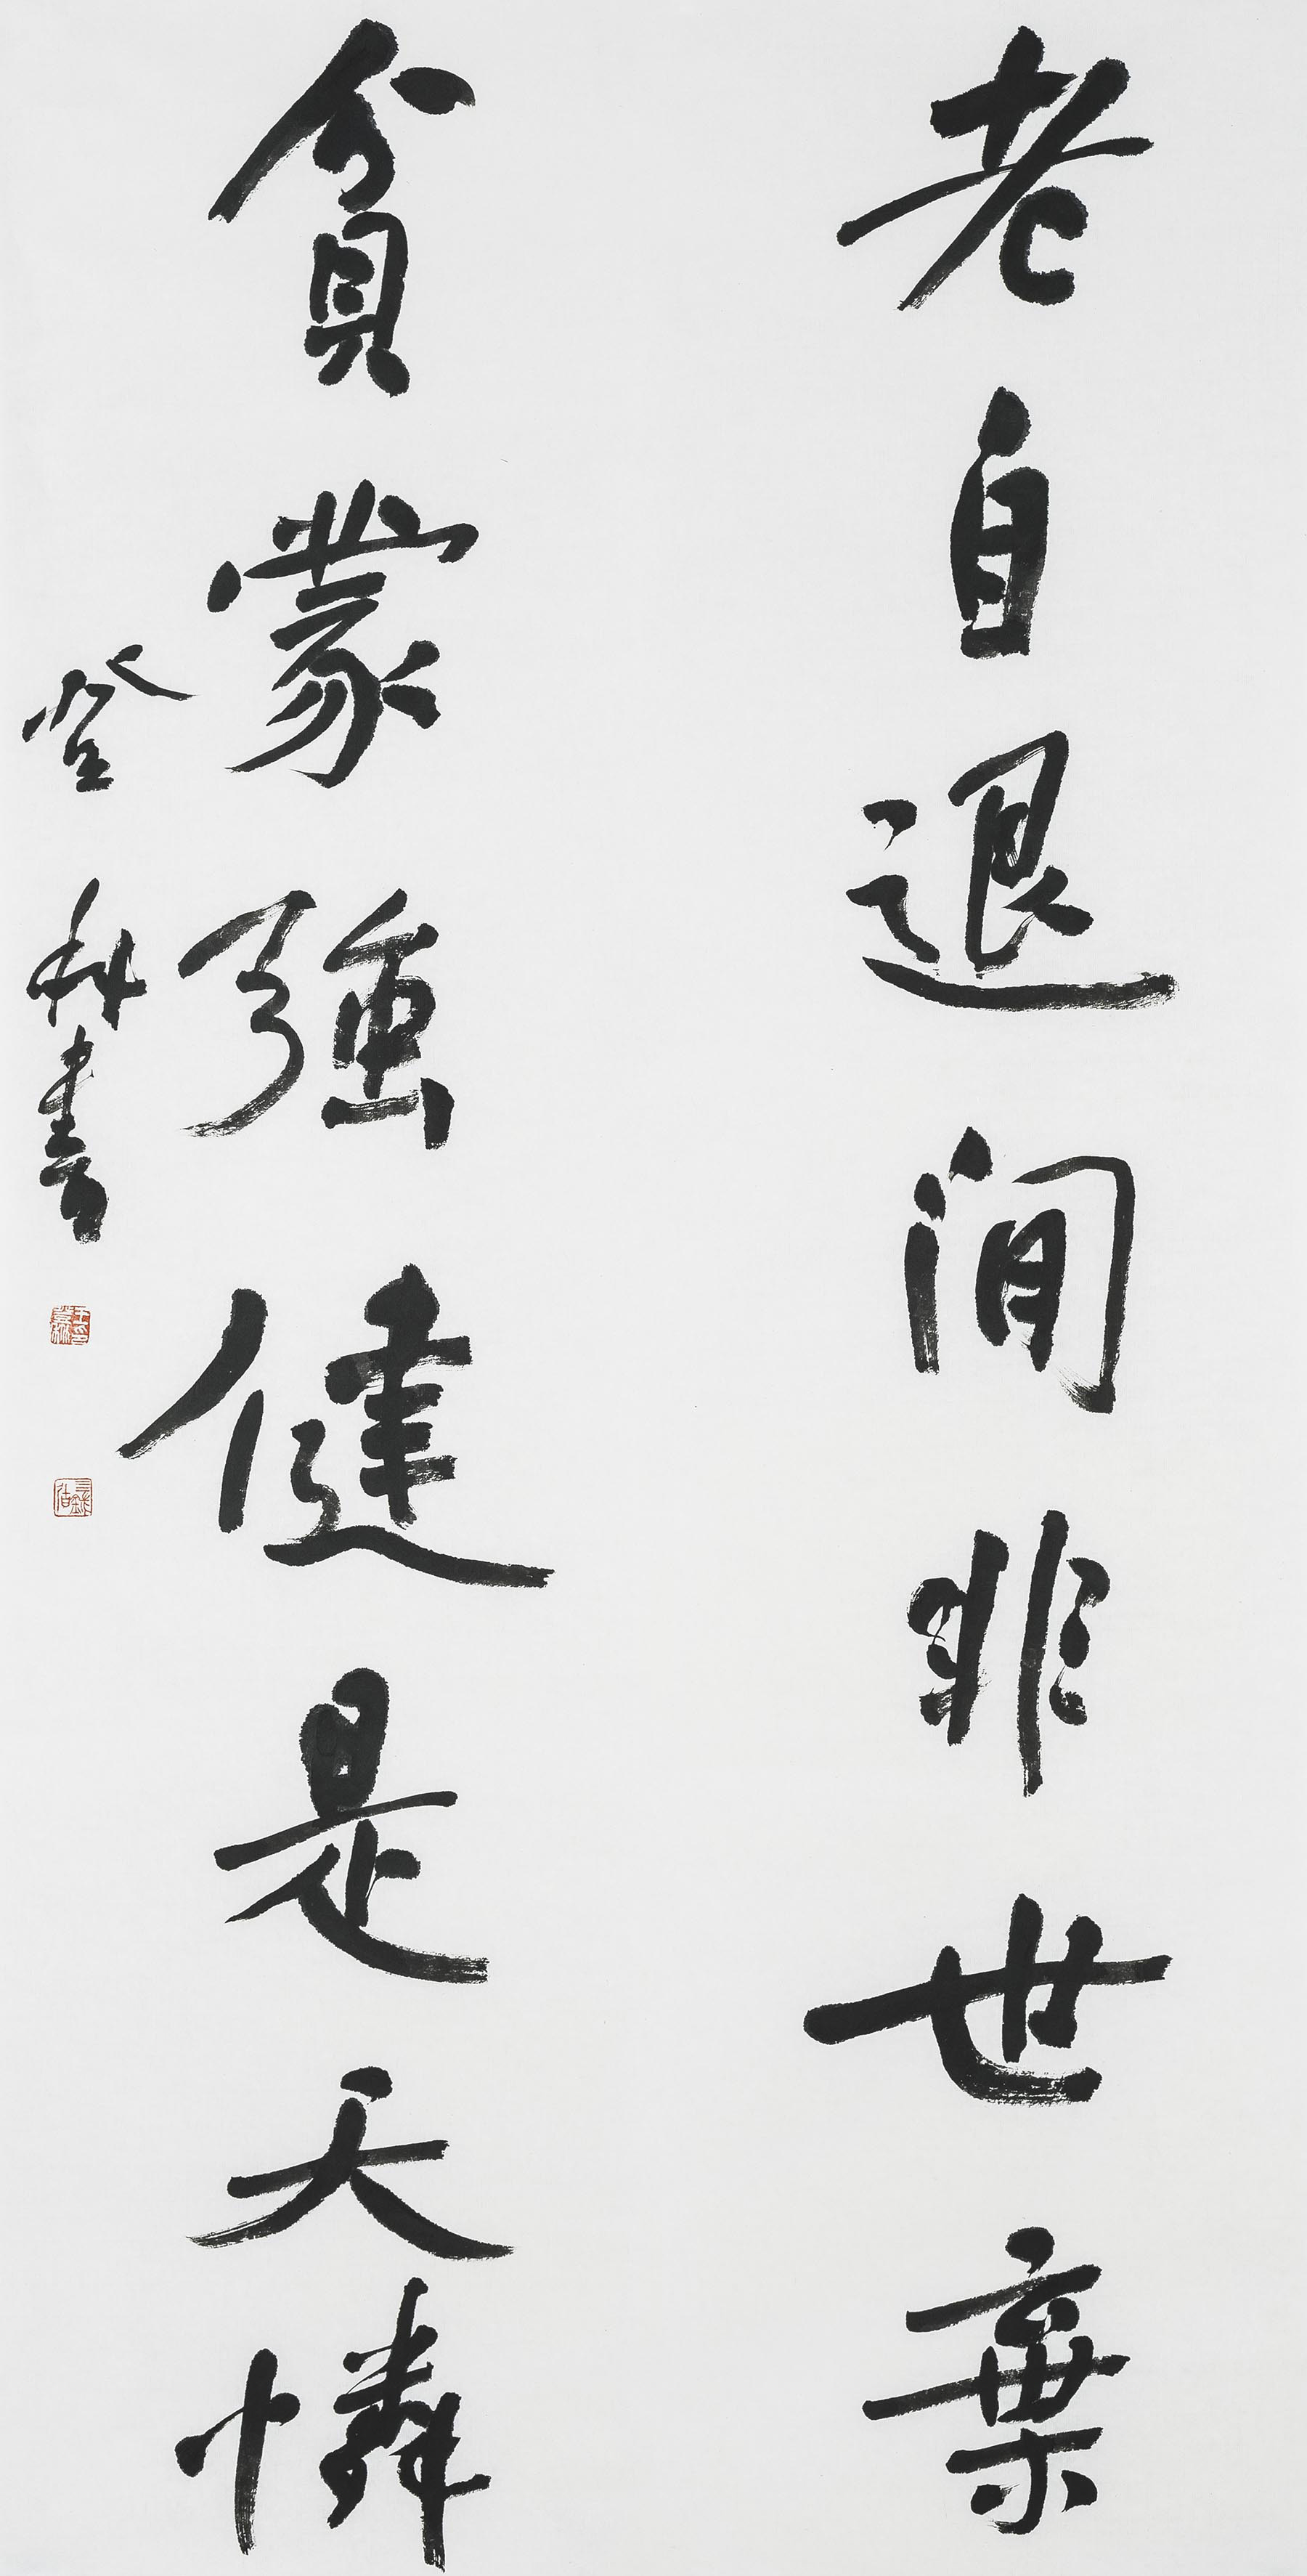 老自退閒非世棄
貧蒙強健是天憐
登科書